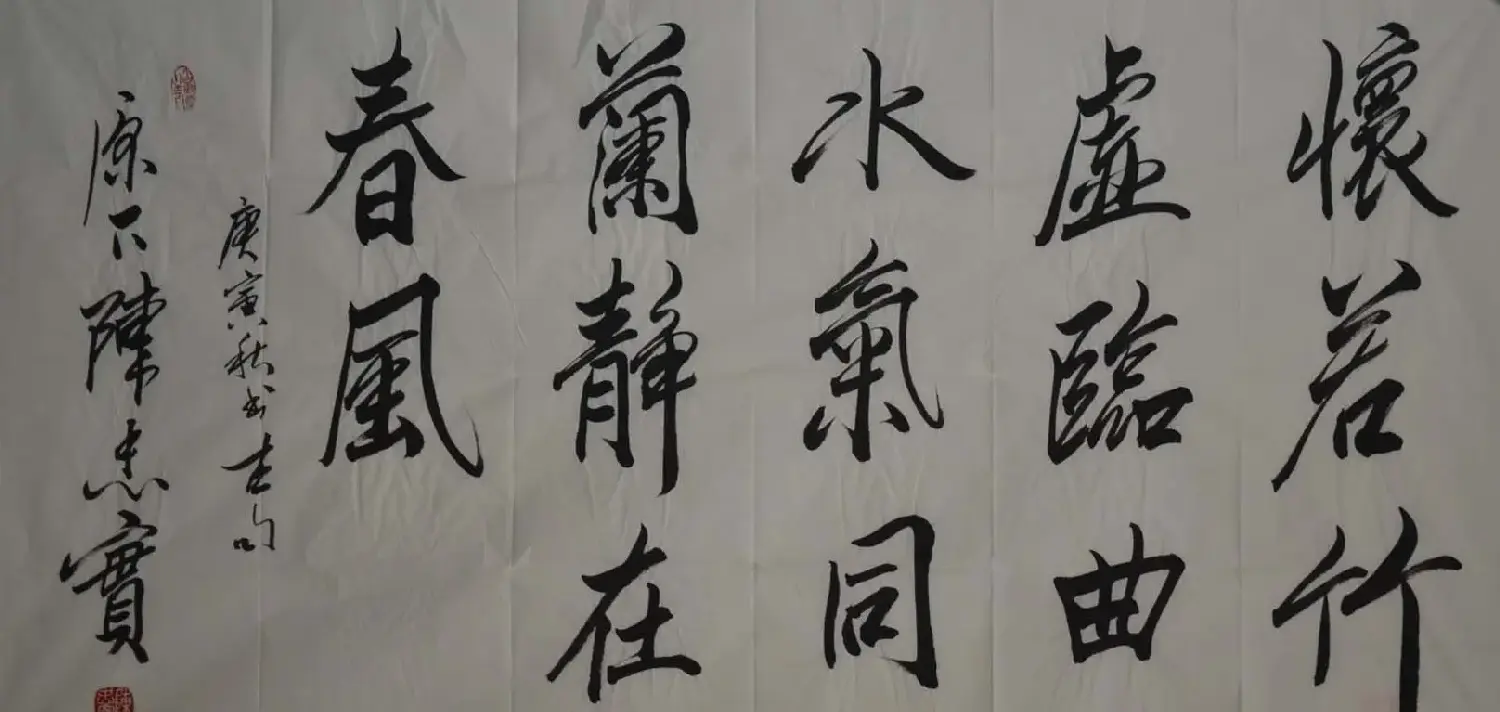 懷若竹
虛臨曲
水氣同
蘭靜在
春風
庚寅秋書古句
陳忠實